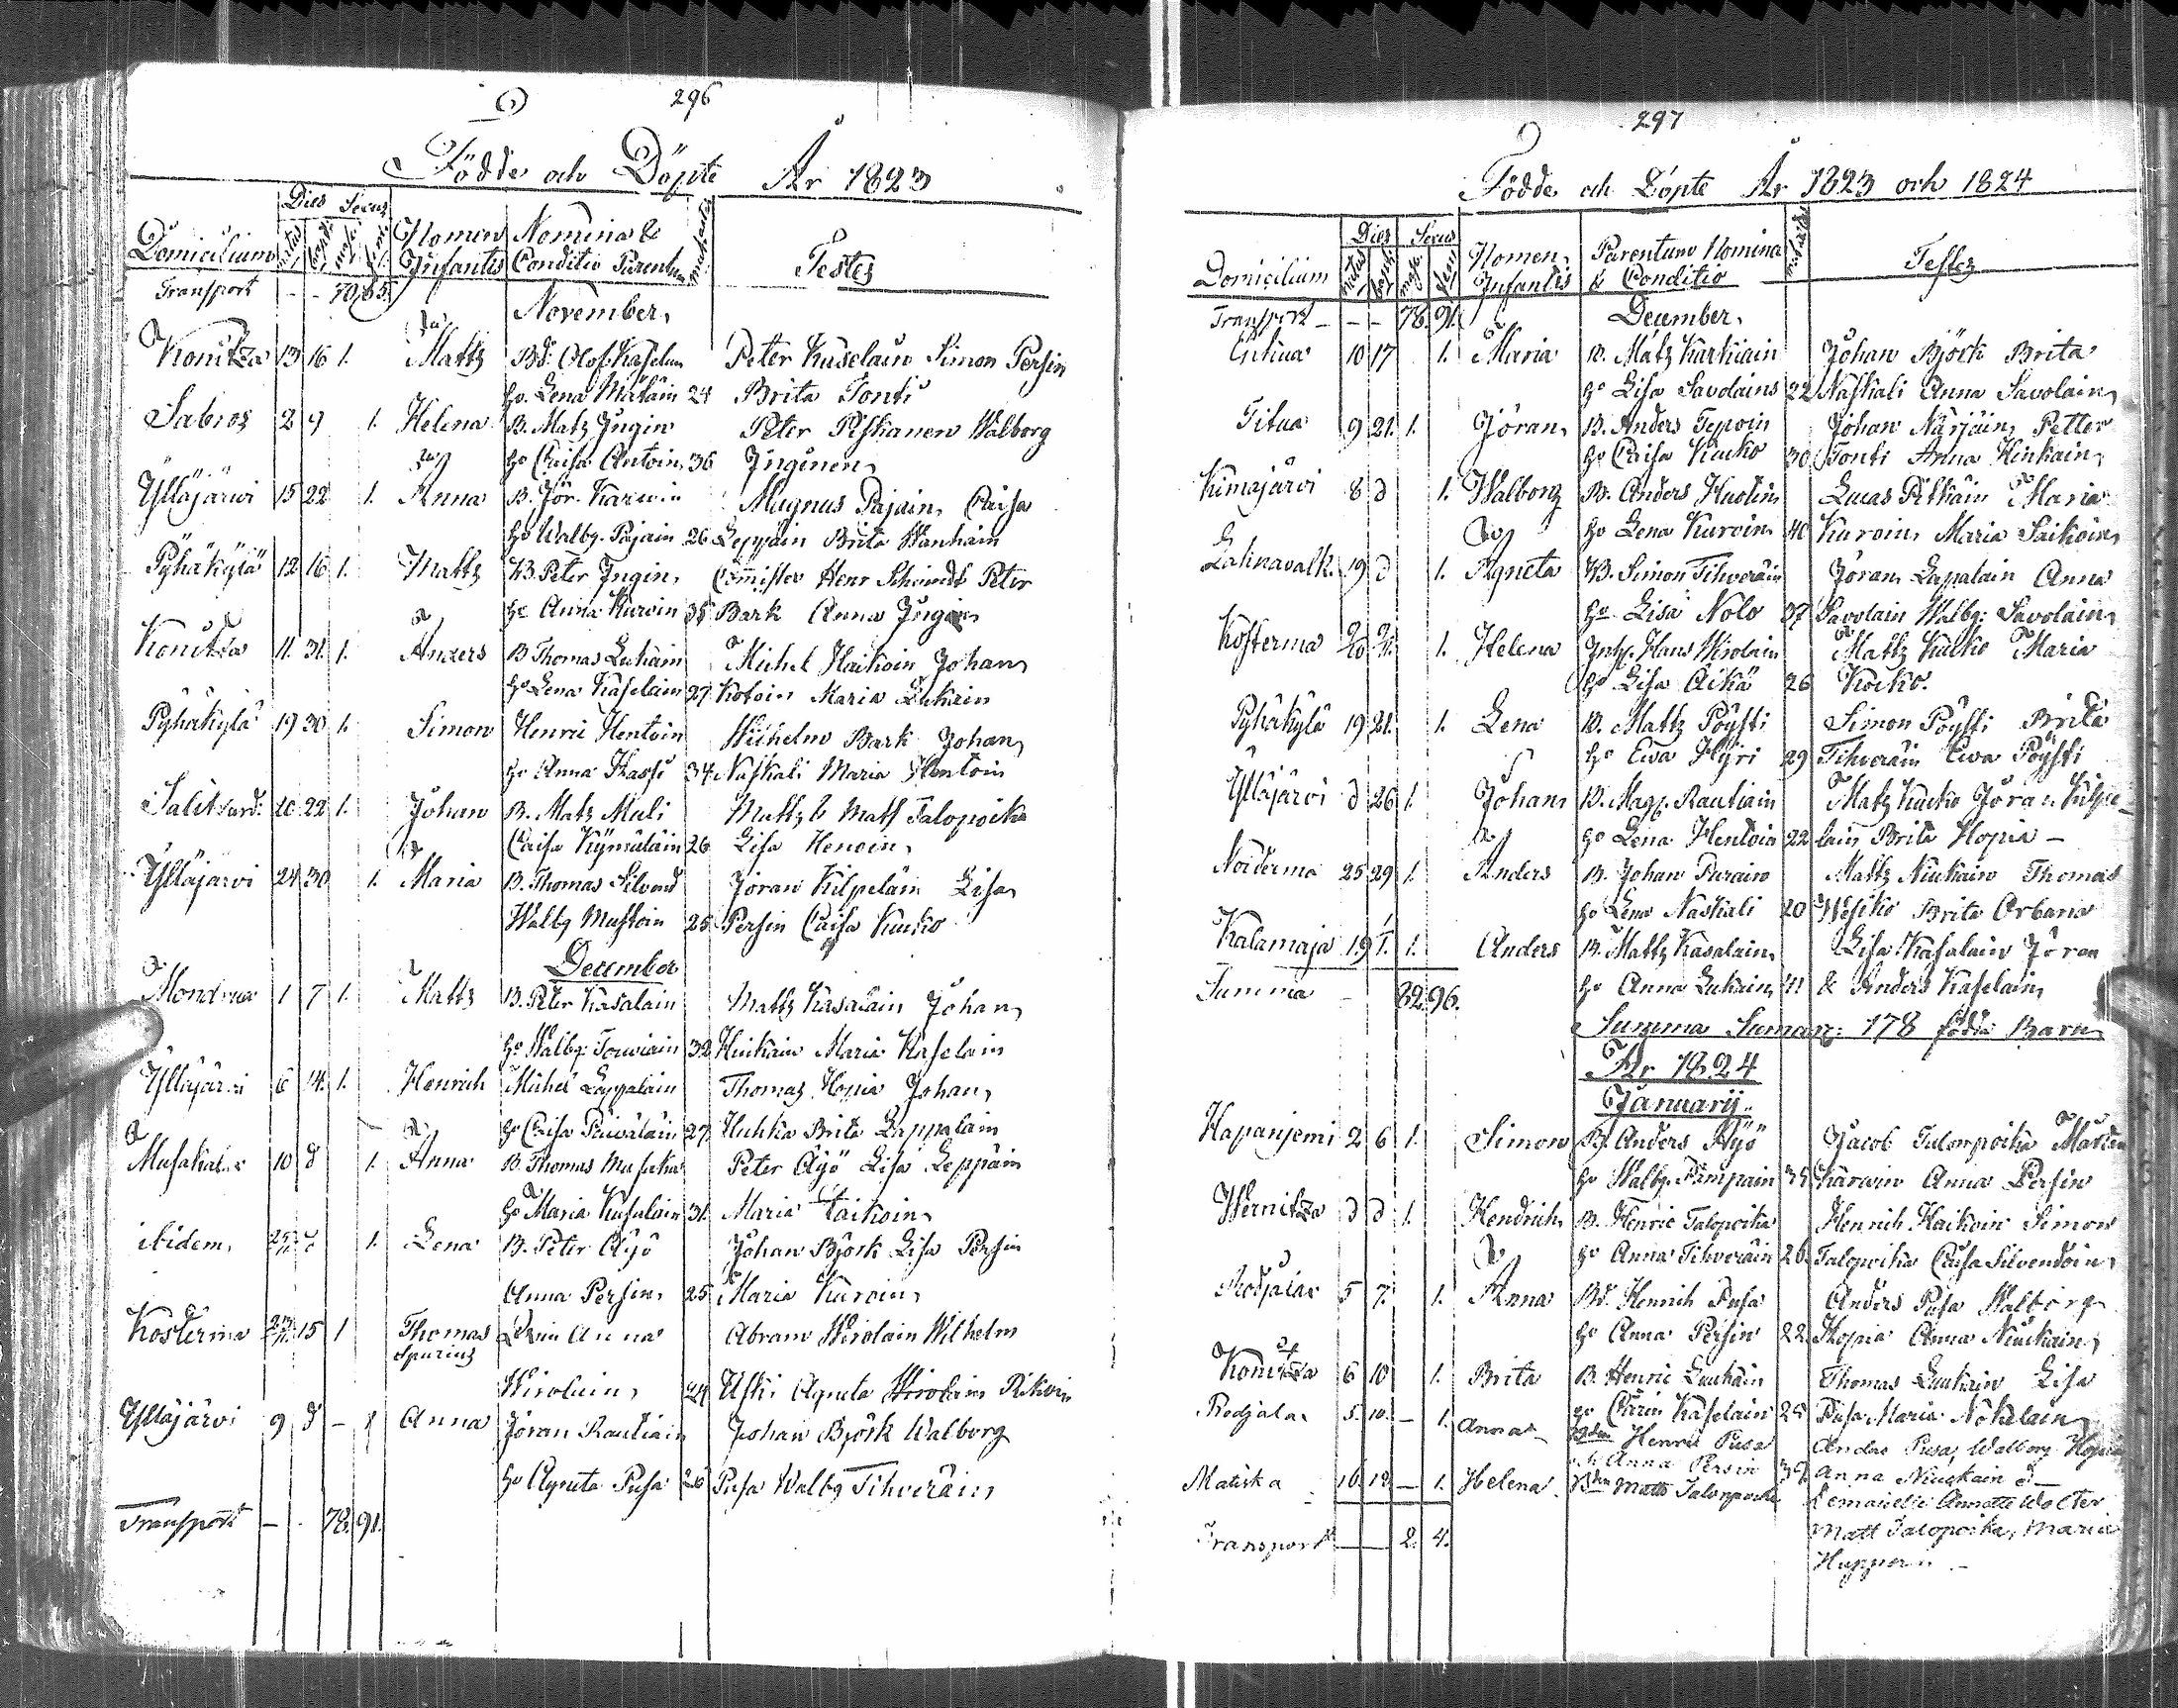 296
Födde och Döpte År 1823
Dies Sexus
Domicilium natus bapt. masc. fem. Nomen Infantis Nomina & Conditio Parentum Testes
Transport - - 70. 65.
November.
Konitza 13 16 1. Matts Bd. Olof Kaselain Peter Kaselain Simon Persin
hu. Lena Mätäin 24 Brita Tonti
Sabros 2 9 1. Helena B. Matz Ingin Peter Piskanen Walborg
hu Caisa Antoin 36 Inginen
Ylläjärwi 15 22 1. Anna B. Jör. Karwin Magnus Pajain, Caisa
hu Walbg. Pajain 26 Leppäin Brita Wanhain
Pyhäkylä 12 16 1. Matts B. Peter Ingin, Commister Henr Schmidt Peter
hu Anna Kurvin 35 Bark Anna Ingin
Konitza 11. 31. 1. Anders B. Thomas Lukain Michel Haikoin Johan
hu Lena Kaselain 27 Kotoin Maria Lukain
Pyhäkylä 19 30 1. Simon Henric Hentoin Wilhelm Bark Johan
hu Anna Hassi 34 Naskali Maria Hentoin
Salitsard. 20 22 1. Johan B. Matz Muli Matts & Matts Talopoika
Caisa Kymäläin 26 Lisa Henoin
Ylläjärvi 24 30 1. Maria B. Thomas Silvend Jöran Kilpeläin Lisa
Walbg Mustoin 25 Persin Caisa Kucko
December
Mondrua 1 7 1. Matts B. Peter Kasalain Matts Kasalain Johan
hu Walbg. Touviain 32 Hinkain Maria Kaselain
Ylläjärvi 6 14. 1. Henrich Michel Lappalain Thomas Hopia Johan
hu Caisa Päiväläin 27 Huhka Brita Lappalain
Musakal. 10 d 1. Anna B. Thomas Musaka Peter Äyö Lisa Leppäin
hu Maria Kasalain 31. Maria Taikoin
ibidem, 1. Lena B. Peter Äyö Johan Björk Lisa Persin
Anna Persin, 25 Maria Kuroin
Kosterma 15 1 Thomas Anna Abram Wirolain Wilhelm
Spurius
Wirolain 24 Uski Agneta Wirolain Rikoin
Ylläjärvi 9 d - 1 Anna Jöran Rautiain Johan Björk Walborg
hu Agneta Pusa 26 Pusa Walbg Tihveräin
Transport - . 78. 91.
297
Födde och Döpte År 1823 och 1824
Dies Sexus
Domicilium natus bapt. masc. fem. Nomen Infantis Parentum Nomina & Conditio Testes
Transport - - - 78. 91. December.
10 17 1. Maria B. Matz Karhiain Johan Björk Brita
hu Lisa Savolains 22 Naskali Anna Savolain
Titua 9 21. 1. Jöran B. Anders Tepoin Johan Närjäin, Petter
hu Caisa Kucko 30 Tonti Anna Hinkain
Kimajärvi 8 d 1. Walborg B. Anders Huolin Lucas Pitkäin Maria
hu Lena Kuroin 40 Kuroin Maria Saikoin
Lahnavalk. 19 d 1. Agneta B. Simon Tihveräin Jöran Lapalain Anna
hu Lisa Nolo 37 Savolain Walbg. Savolain
Kosterma 1. Helena Inhs. Hans Wirolain Matts Kucko Maria
hu Lisa Äikä 26 Kucko.
Pyhäkylä 19 21. 1. Lena B. Matts Pöysti Simon Pöysti Brita
hu Ewa Hyri 29 Tihveräin Ewa Pöysti
Ylläjärvi d 26 1. Johan B. Magn. Rautiain Matz Kucko Jöran Kilpe-
hu Lena Hentoin 22 lain Brita Hopia -
Noiderma 25 29 1. Anders B. Johan Purain Matts Niukain Thomas
hu Lena Naskali 20 Wesiko Brita Orbana
Kalamaja 19 1. Anders B. Matts Kasalain Lisa Kasalain Jöran
Summa - 82. 96. hu Anna Lukain 41 & Anders Kaselain
Summa Sumar: 178 födda Barn
År 1824
Januarij.
Hapanjemi 2 6 1. Simon B. Anders Äyö Jacob Talonpoika Mårten
hu Walbg. Pimpain 35 Karwin Anna Persin
Wernitza d d 1. Hendrich B. Henric Talopoika Henrich Haikoin Simon
hu Anna Tihveräin 26 Talopoika Caisa Silvendoin
Rodjala 5 7. 1. Anna Bd. Henrich Pusa Anders Pusa Walborg
hu Anna Persin 22 Hopia Anna Niukain
Konitza 6 10 1. Brita B. Henric Luukain Thomas Luukain Lisa
hu Carin Kaselain 25 Pusa Maria Nokelain
Rodjala 5. 10. - 1. Anna Bden Henric Pusa Anders Pusa, Walborg Hopia
Anna Persin Anna Niugkain
Matiska 10. 12. - 1. Helena Bden Matts Talonpoika Demoiselle Annette Wolter
Transport 2. 4. Matt Talopoika, Maria